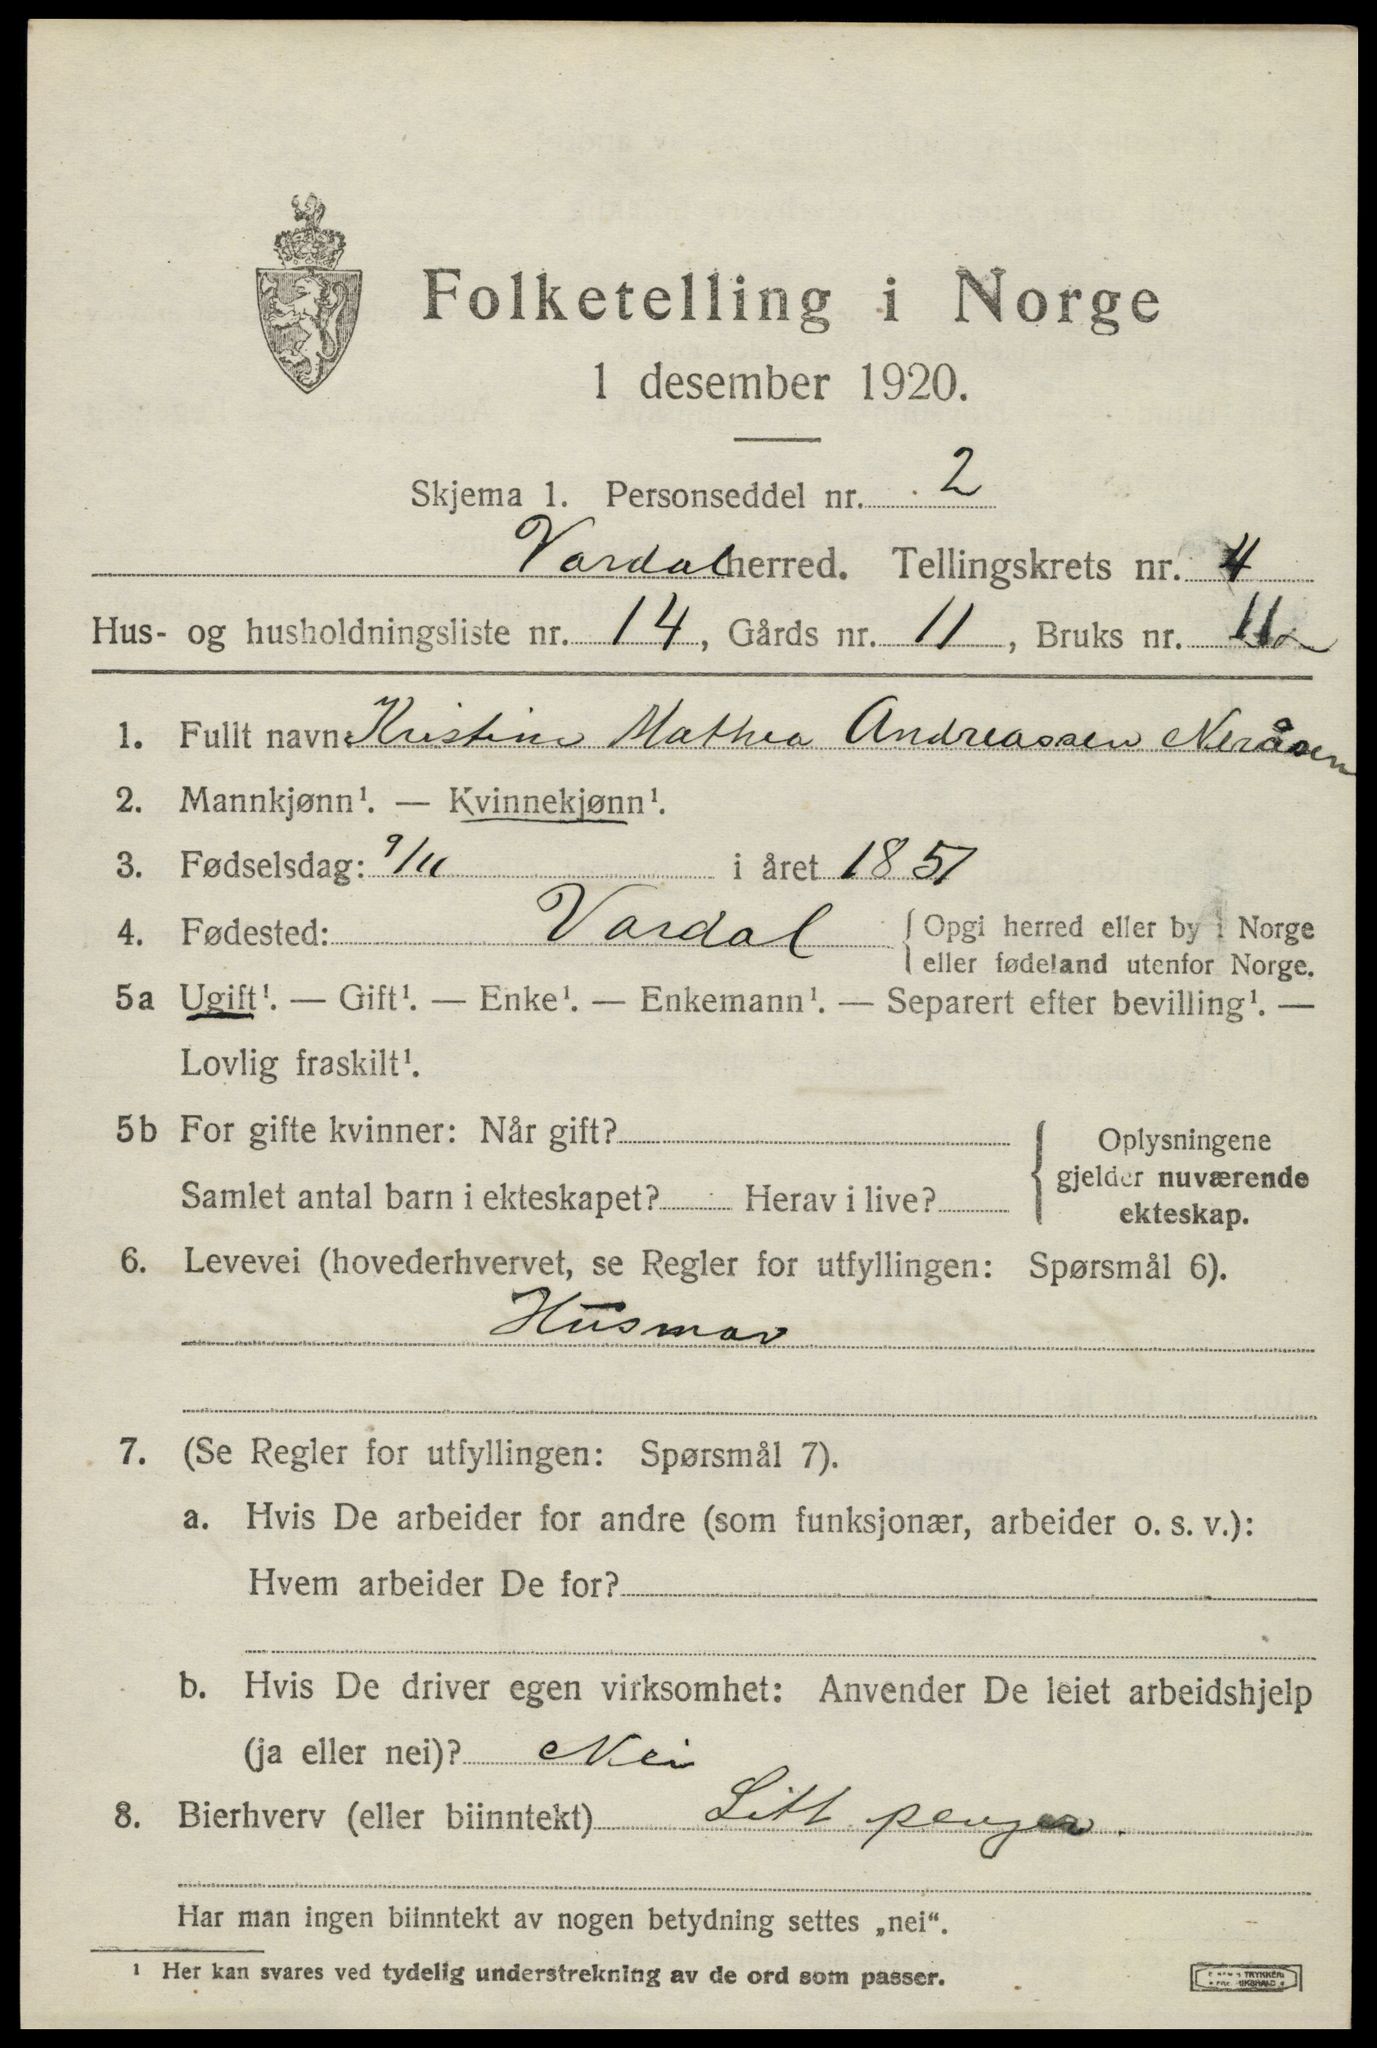 Folketelling i Norge
1 desember 1920.
Skjema 1. Personseddel nr. 2
Vardal herred. Tellingskrets nr. 4
Hus- og husholdningsliste nr. 14, Gårds nr. 11, Bruks nr. 11
1. Fullt navn: Kristine Mathea Andreassen Neråsen
2. Mannkjønn¹. — Kvinnekjønn¹.
3. Fødselsdag: 9/11 i året 1851
4. Fødested: Vardal { Opgi herred eller by i Norge
eller fødeland utenfor Norge.
5a Ugift¹. — Gift¹. — Enke¹. — Enkemann¹. — Separert efter bevilling¹. —
Lovlig fraskilt¹.
5b For gifte kvinner: Når gift? { Oplysningene
gjelder nuværende
Samlet antal barn i ekteskapet? Herav i live?
ekteskap.
6. Levevei (hovederhvervet, se Regler for utfyllingen: Spørsmål 6).
Husmor
7. (Se Regler for utfyllingen: Spørsmål 7).
a. Hvis De arbeider for andre (som funksjonær, arbeider o. s. v.):
Hvem arbeider De for?
b. Hvis De driver egen virksomhet: Anvender De leiet arbeidshjelp
(ja eller nei)? Nei
8. Bierhverv (eller biinntekt) Litt penger.
Har man ingen biinntekt av nogen betydning settes „nei“.
¹ Her kan svares ved tydelig understrekning av de ord som passer.